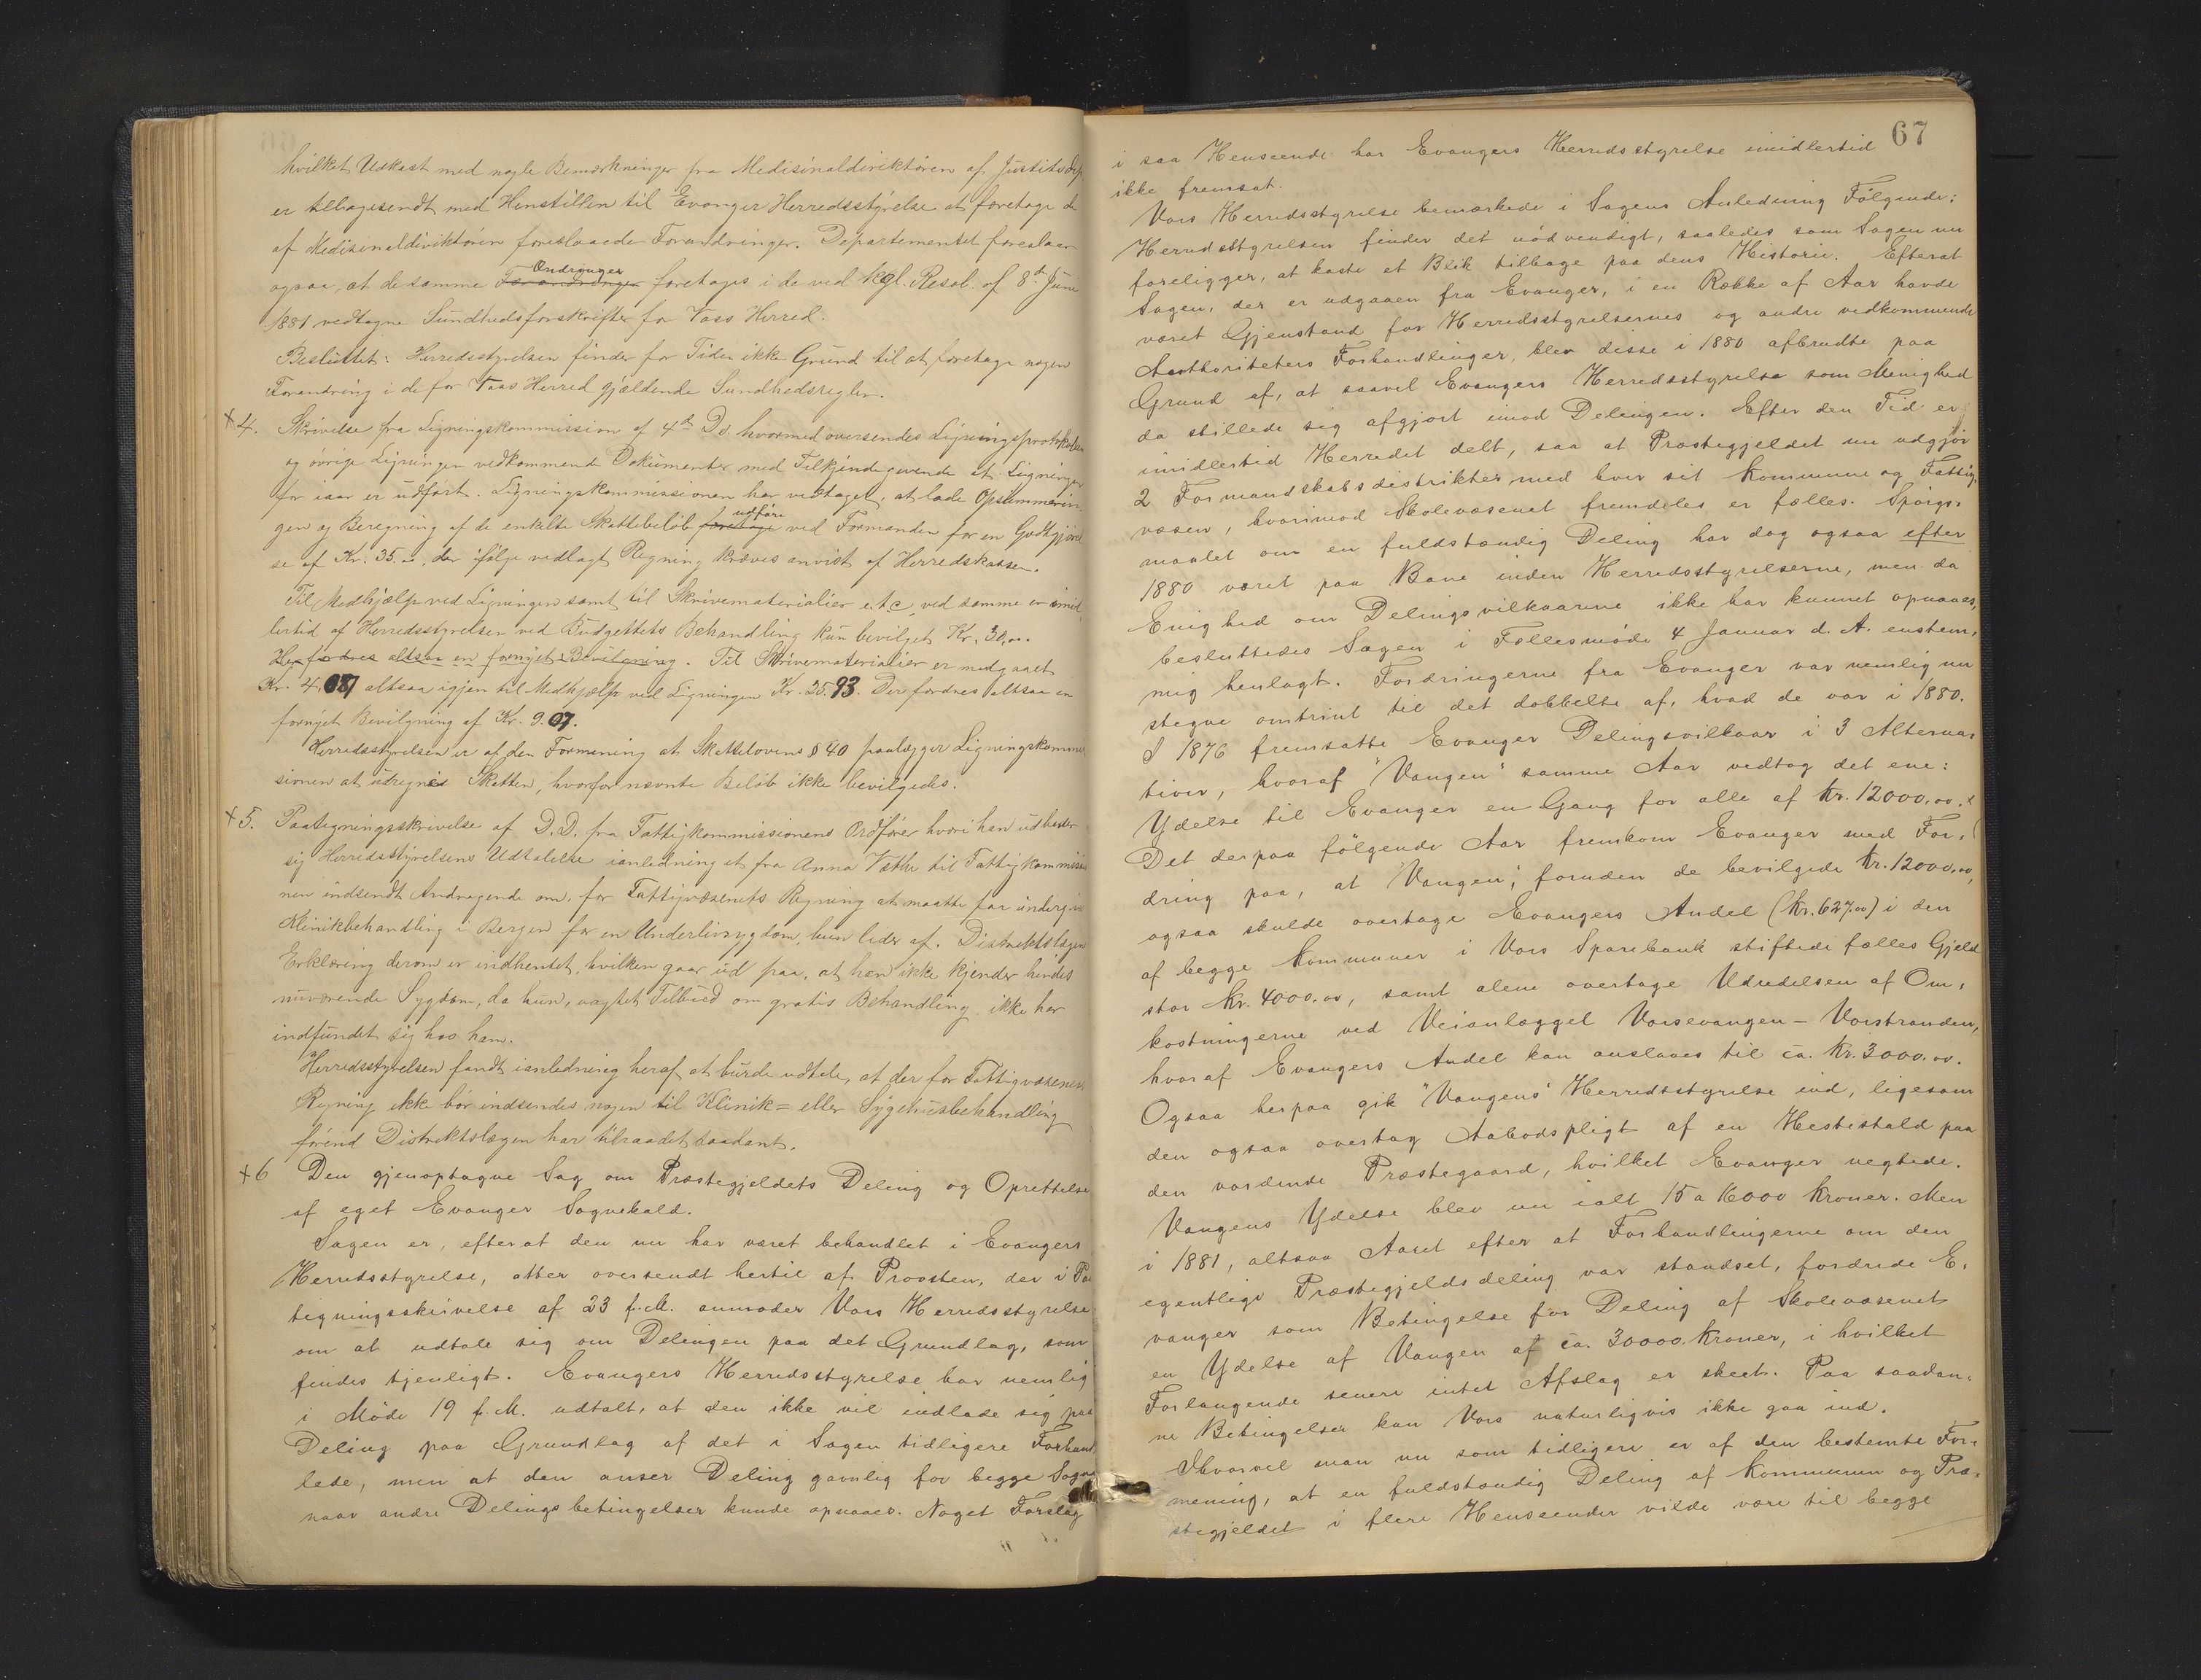 hvilket Udkast med nogle Bemærkninger fra Medisinaldirektören af Justitsdep
er tilbagesendt med Henstillen til Evanger Herredsstyrelse at foretage de
af Medisinaldirektören foreslaaede Forandringer. Departementet foreslaar
ogsaa, at de samme Forandringer Ændringer foretages i de ved kgl. Resol. af 8de Juni
1881 vedtagne Sundhedsforskrifter for Voss Herred.
Besluttet: Herredsstyrelsen finder for Tiden ikke Grund til at foretage nogen
Forandring i de for Voss Herred gjældende Sundhedsregler.
+4. Skrivelse fra Ligningskommission af 4de Ds. hvormed oversendes Ligningsprotokollen
og övrige Ligningen vedkommende Dokumenter med Tilkjendegivende at Ligningen
for iaar er udfört. Ligningskommissionen har vedtaget, at lade Opsummerin,
gen og Beregning af de enkelte Skattebelöb foretage udföre ved Formanden for en Godtgjörel
se af Kr. 35.00, der ifölge vedlagt Regning kræves anvist af Herredskassen.
Til Medhjælp ved Ligningen samt til Skrivematerialier etc ved samme er imid,
lertid af Herredsstyrelsen ved Budgettets Behandling kun bevilget Kr. 30.00.
Her fordres altsaa en fornyet Bevilgning. Til Skrivematerialier er medgaaet
Kr. 4.07 altsaa igjen til Medhjælp ved Ligningen Kr. 25.93. Der fordres altsaa en
fornyet Bevilgning af Kr. 9.07.
Herredsstyrelsen er af den Formening at Skattelovens § 40 paalægger Ligningskommis
sionen at udregne Skatten, hvorfor nævnte Belöb ikke bevilgedes.
+5. Paategningsskrivelse af D.D. fra Fattigkommissionens Ordförer hvori han udbeder
sig Herredsstyrelsens Udtalelse ianledning et fra Anna Væthe til Fattigkommissio
nen indsendt Andragende om, for Fattigvæsenets Regning at maatte faa undergaa
Klinikbehandling i Bergen for en Underlivssygdom, hun lider af. Distriktslægens
Erklæring derom er indhentet, hvilken gaar ud paa, at han ikke kjender hendes
nuværende Sygdom, da hun, uagtet Tilbud om gratis Behandling, ikke har
indfundet sig hos ham.
Herredsstyrelsen fandt ianledning heraf at burde udtale, at der for Fattigvæsenets
Regning ikke bör indsendes nogen til Klinik= eller Sygehusbehandling
förend Distriktslægen har tilraadet saadant.
+6 Den gjenoptagne Sag om Præstegjeldets Deling og Oprettelse
af eget Evanger Sognekald.
Sagen er, efterat den nu har været behandlet i Evangers
Herredsstyrelse, atter oversendt hertil af Provsten, der i Paa
tegningsskrivelse af 23 f.M. anmoder Vors Herredsstyrelse
om at udtale sig om Delingen paa det Grundlag, som
findes tjenligt. Evangers Herredsstyrelse har nemlig
i Möde 19 f.M. udtalt, at den ikke vil indlade sig paa
Deling paa Grundlag af det i Sagen tidligere Forhand,
lede, men at den anser Deling gavnlig for begge Sogne
naar andre Delingsbetingelser kunde opnaaes. Noget Forslag
67
i saa Henseende har Evangers Herredsstyrelse imidlertid
ikke fremsat.
Vors Herredsstyrelse bemærkede i Sagens Anledning Fölgende:
Herredsstyrelsen finder det nödvendigt, saaledes som Sagen nu
foreligger, at kaste et Blik tilbage paa dens Historie. Efterat
Sagen, der er udgaaen fra Evanger, i en Række af Aar havde
været Gjenstand for Herredsstyrelsernes og andre vedkommende
Authoriteters Forhandlinger, blev disse i 1880 afbrudte paa
Grund af, at saavel Evangers Herredsstyrelse som Menighed
da stillede sig afgjort imod Delingen. Efter den Tid er
imidlertid Herredet delt, saa at Præstegjeldet nu udgjör
2 Formandskabsdistrikter med hver sit Kommune og Fattig,
væsen, hvorimod Skolevæsenet fremdeles er fælles. Spörgs,
maalet om en fuldstændig Deling har dog ogsaa efter
1880 været paa Bane inden Herredsstyrelserne, men da
Enighed om Delingsvilkaarene ikke har kunnet opnaaes,
besluttedes Sagen i Fællesmöde 4 Januar d. A. enstem,
mig henlagt. Fordringerne fra Evanger var nemlig nu
stegne omtrint til det dobbelte af, hvad de var i 1880.
I 1876 fremsatte Evanger Delingsvilkaar i 3 Alterna,
tiver, hvoraf "Vangen" samme Aar vedtog det ene:
Ydelse til Evanger en Gang for alle af Kr. 12000.00.
Det derpaa fölgende Aar fremkom Evanger med For,
dring paa, at "Vangen", foruden de bevilgede Kr. 12000.00,
ogsaa skulde overtage Evangers Andel (Kr. 627.00) i den
af begge Kommuner i Vors Sparebank stiftede fælles Gjeld
stor Kr. 4000.00, samt alene overtage Udredelsen af Om,
kostningerne ved Veianlægget Vossevangen - Vorstranden,
hvoraf Evangers Andel kan anslaaes til ca. Kr. 3000.00.
Ogsaa herpaa gik "Vangens" Herredsstyrelse ind, ligesom
den ogsaa overtog Aabodspligt af en Hestestald paa
den vordende Præstegaard, hvilket Evanger negtede.
Vangens Ydelse blev nu ialt 15 a 16000 Kroner. Men
i 1881, altsaa Aaret efter at Forhandlingerne om den
egentlige Præstegjeldsdeling var standset, fordrede E,
vanger som Betingelse for Deling af Skolevæsenet
en Ydelse af Vangen af ca. 30000 Kroner, i hvilket
Forlangende senere intet Afslag er skeet. Paa saadan,
ne Betingelser kan Vors naturligvis ikke gaa ind.
Ihvorvel man nu som tidligere er af den bestemte For,
mening, at en fuldstændig Deling af Kommunen og Præ,
stegjeldet i flere Henseender vilde være til begge